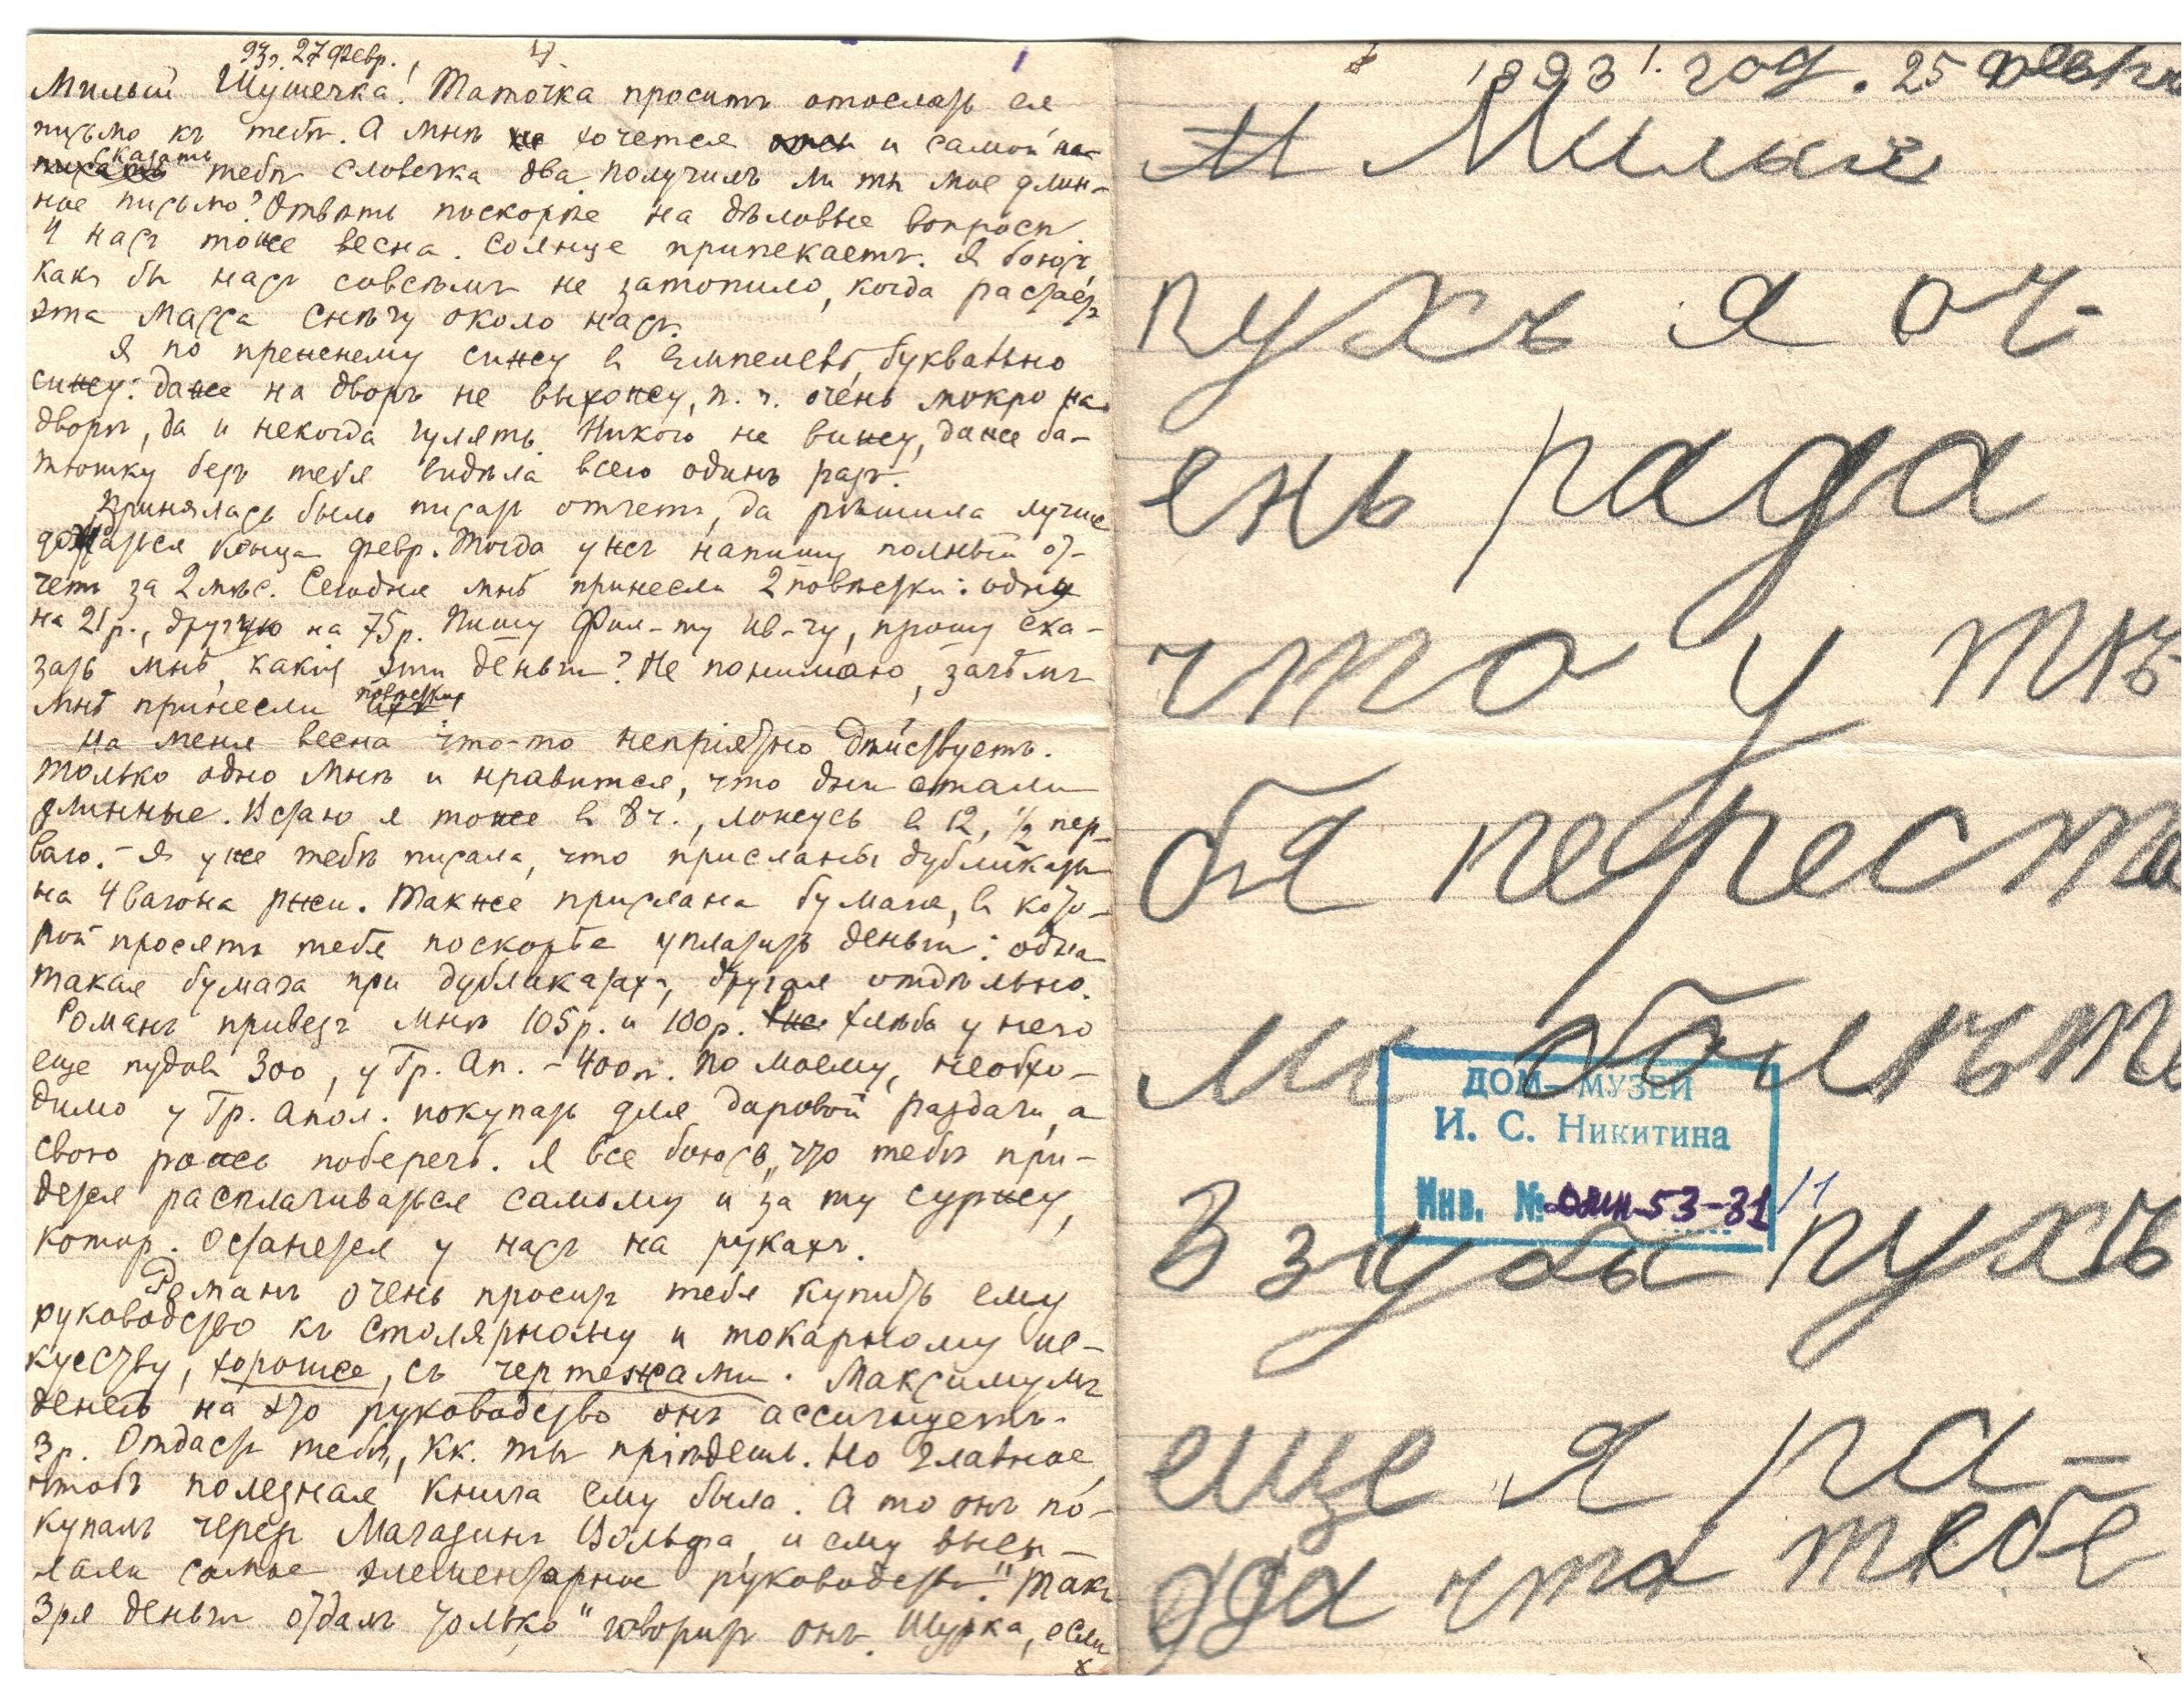 93г. 27 февр.
Милый Шушечка! Таточка проситъ отослать ея
письмо къ тебѣ. А мнѣ не хочется и самой на-
писать сказать тебѣ словечка два. Получилъ ли ты мое длин-
ное письмо? Отвѣть поскорѣе на дѣловые вопросы.
У насъ тоже весна. Солнце припекаетъ. Я боюсь,
какъ бы насъ совсѣмъ не затопило, когда растаетъ
эта масса снѣгу около насъ.
Я по прежнему сижу въ Емпелевѣ, буквально
сижу: даже на дворъ не выхожу, п. ч. очень мокро на
дворѣ, да и некогда гулять. Никого не вижу, даже ба-
тюшку безъ тебя видѣла всего одинъ разъ.
Принялась было писать отчетъ, да рѣшила лучше
дождаться конца февр. Тогда ужъ напишу полный от-
четъ за 2 мѣс. Сегодня мнѣ принесли 2 повѣстки: одну
на 21 р., другую на 75 р. Пишу Фил-ту Ив-чу, прошу ска-
зать мнѣ, какія эти деньги? Не понимаю, зачѣмъ
мнѣ принесли повѣстки
На меня весна что-то непріятно дѣйствуетъ.
Только одно мнѣ и нравится, что дни стали
длинные. Встаю я тоже въ 8 ч., ложусь въ 12, ½ пер-
ваго. – Я уже тебѣ писала, что присланы дубликаты
на 4 вагона ржи. Также прислана бумага, въ кото-
рой просятъ тебя поскорѣе уплатить деньги: одна
такая бумага при дубликатахъ, другая отдѣльно.
Романъ привезъ мнѣ 105 р. и 100 р. хлѣба у него
еще пудовъ 300, у Гр. Ап. – 400 п. По моему, необхо-
димо у Гр. Апол. покупать для даровой раздачи, а
свою рожь поберечь. Я все боюсь, что тебѣ при-
дется расплачиваться самому и за ту суржу,
котор. останется у насъ на рукахъ.
Романъ очень проситъ тебя купить ему
руководство къ столярному и токарному ис-
кусству, хорошее, съ чертежами. Максимумъ
денегъ на это руководство онъ ассигнуетъ
3 р. Отдастъ тебѣ, кк. ты пріѣдешь. Но главное,
чтобъ полезная книга ему была. А то онъ по-
купалъ черезъ Магазинъ Вольфа, и ему высы-
лали самое элементарное руководство. "Такъ
зря деньги отдалъ только" говоритъ онъ. Шурка, если
1893 г. год. 25 февр
М Милый
пухъ я оч-
ень рада
что у тѣ-
бя переста
ли болѣть
Взубы пухъ
еще я ра-
да что тебе
ДОМ-МУЗЕЙ
И. С. Никитина
Инв. № 53-81/1